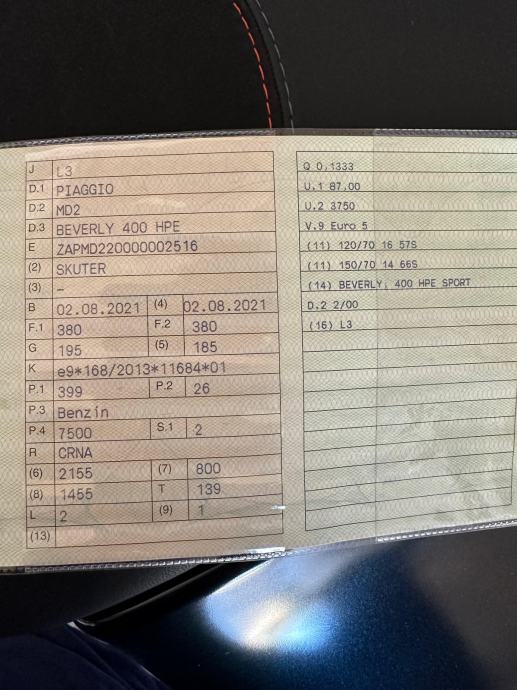 J L3
D.1 PIAGGIO
D.2 MD2
D.3 BEVERLY 400 HPE
E ZAPMD220000002516
(2) SKUTER
(3) –
B 02.08.2021 (4) 02.08.2021
F.1 380 F.2 380
G 195 (5) 185
K e9*168/2013*11684*01
P.1 399 P.2 26
P.3 Benzin
P.4 7500 S.1 2
R CRNA
(6) 2155 (7) 800
(8) 1455 T 139
L 2 (9) 1
(13)
Q 0,1333
U.1 87,00
U.2 3750
V.9 Euro 5
(11) 120/70 16 57S
(11) 150/70 14 66S
(14) BEVERLY, 400 HPE SPORT
D.2 2/00
(16) L3